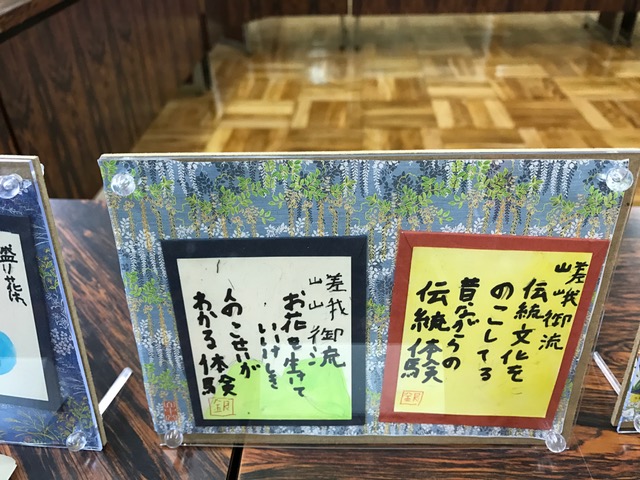 嵯峨御流
伝統文化を
のこしてる
昔ながらの
伝統体験
嵯峨御流
お花を生けて
いいけしき
人のこせいが
わかる体験
盛り花は、